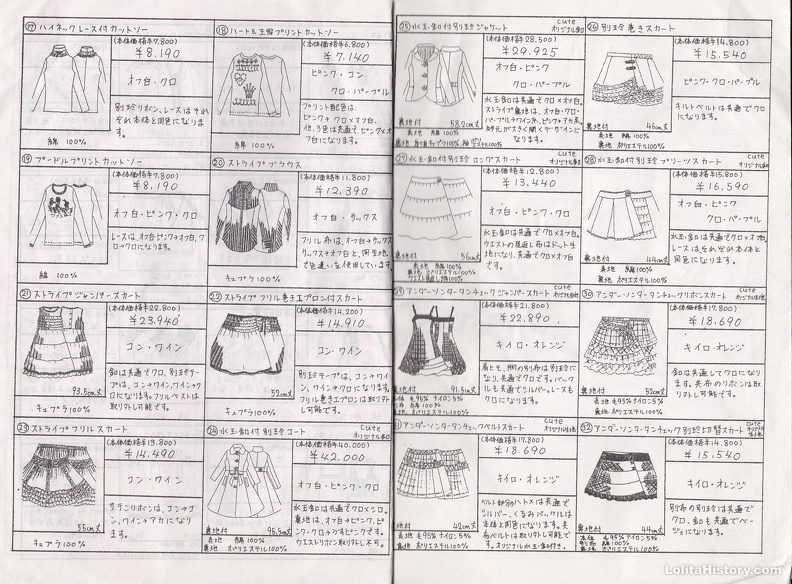 ⑰ ハイネック レース付カットソー
(本体価格¥7,800)
¥8,190
オフ白・クロ
別珍リボン、レースはそれ
ぞれ本体と同色になりま
す。
綿 100%
⑱ ハート&王冠プリントカットソー
(本体価格¥6,800)
¥7,140
ピンク・コン
クロ・パープル
プリント配色は、
ピンク→クロ×オフ白、
他、3色は共通で、ピンク×オ
フ白になります。
綿 100%
⑲ プードルプリントカットソー
(本体価格¥7,800)
¥8,190
オフ白・ピンク・クロ
レースは、オフ白・ピンク→オフ白、ク
ロ→クロになります。
綿 100%
⑳ ストライプブラウス
(本体価格¥11,800)
¥12,390
オフ白・サックス
フリル布は、オフ白→サックス
サックス→オフ白と、同生地
で色違いを使用しています
キュプラ 100%
㉑ ストライプジャンパースカート
(本体価格¥22,800)
¥23,940
コン・ワイン
釦は共通でクロ、別珍テ
ープは、コン→ワイン、ワイン→ク
ロになります。フリルベストは
取りハズし可能です。
93.5cm丈
キュプラ 100%
㉒ ストライプフリル巻きエプロン付スカート
(本体価格¥14,200)
¥14,910
コン・ワイン
別珍テープは、コン→ワイ
ン、ワイン→クロになります。
フリル巻きエプロンは取りハズ
し可能です。
52cm丈
キュプラ100%
㉓ ストライプフリルスカート
(本体価格¥13,800)
¥14,490
コン・ワイン
サテンリボンは、コン→コ
ン、ワイン→アカになり
ます。
55cm丈
キュプラ 100%
㉔ 水玉釦付別珍コート
cute
オリジナル釦
(本体価格¥40,000)
¥42,000
オフ白・ピンク・クロ
水玉釦は共通でクロ×シロ。
裏地は、オフ白→ピンク、ピ
ンク・クロ→うすピンクです。
ウエストリボン取りハズし不可。
裏地付
95.5cm丈
表地 綿 100%
裏地 ポリエステル100%
㉕ 水玉釦付別珍ジャケット
cute
オリジナル釦
(本体価格¥28,500)
¥29,925
オフ白・ピンク
クロ・パープル
水玉釦は共通でクロ×オフ白。
ストライプ裏地は、オフ白・クロ・
なります。
裏地付
58.2cm丈
表地 綿 100%
㉖ 別珍巻きスカート
(本体価格¥14,800)
¥15,540
ピンク・クロ・パープル
キルトベルトは共通でクロ
になります。
裏地付
46cm丈
表地 綿 100%
裏地 ポリエステル 100%
㉗ 水玉釦付別珍ロングスカート
cute
オリジナル釦
(本体価格¥12,800)
¥13,440
オフ白・ピンク・クロ
水玉釦は共通でクロ×オフ白。
ウエストの見返し布はドット生
地になります。共通でクロ×オ
フ白です。
裏地付
56cm丈
表地 綿 100%
裏地 ポリエステル100%
㉘ 水玉釦付別珍プリーツスカート
cute
オリジナル釦
(本体価格¥15,800)
¥16,590
オフ白・ピンク
クロ・パープル
水玉釦は共通でクロ×オフ白。
レースはそれぞれ本体と
同色になります。
裏地付
44cm丈
表地 綿 100%
裏地 ポリエステル 100%
㉙ アンダーソンタータンチェックジャンパースカート
cute
オリジナル釦
(本体価格¥21,800)
¥22,890
キイロ・オレンジ
肩ヒモ、胴の別布は別珍に
なり、共通でクロです。バック
ルも共通でシルバー。レースも
クロになります。
裏地付
91.5cm丈
表地 毛95% ナイロン5%
別布 綿100%
裏地 ポリエステル100%
㉚ アンダーソンタータンチェックリボンスカート
cute
オリジナル釦
(本体価格¥17,800)
¥18,690
キイロ・オレンジ
釦は共通してクロになり
ます。共布のリボンは取り
ハズし可能です。
裏地付
52cm丈
表地 毛95%ナイロン5%
裏地 ポリエステル100%
㉛ アンダーソンタータンチェックベルトスカート
cute
オリジナル釦
(本体価格¥17,800)
¥18,690
キイロ・オレンジ
ベルト部分のハトメは共通で
シルバー、くるみバックルは
本体と同色になります。共
布ベルトは取りハズし可能で
す。オリジナル水玉・釦付き。
裏地付
42cm丈
表地 毛95%ナイロン5%
裏地 ポリエステル100%
㉜ アンダーソンタータンチェック別珍切替スカート
cute
オリジナル釦
(本体価格¥14,800)
¥15,540
キイロ・オレンジ
別布の別珍は共通で
クロ、釦も共通でベー
ジュになります。
裏地付
44cm丈
本体 毛95%ナイロン5%
別布 綿100%
裏地 ポリエステル100%
LolitaHistory.com